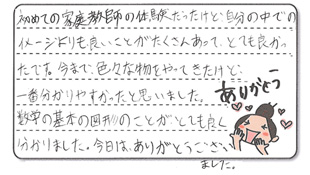 初めての家庭教師の体験だったけど、自分の中での
イメージよりも良いことがたくさんあって、とても良かっ
たです。今まで、色々な物をやってきたけど、
一番分かりやすかったと思いました。
数学の基本の図形のことが、とても良く
分かりました。今日は、ありがとうござい
ました。
ありがとう